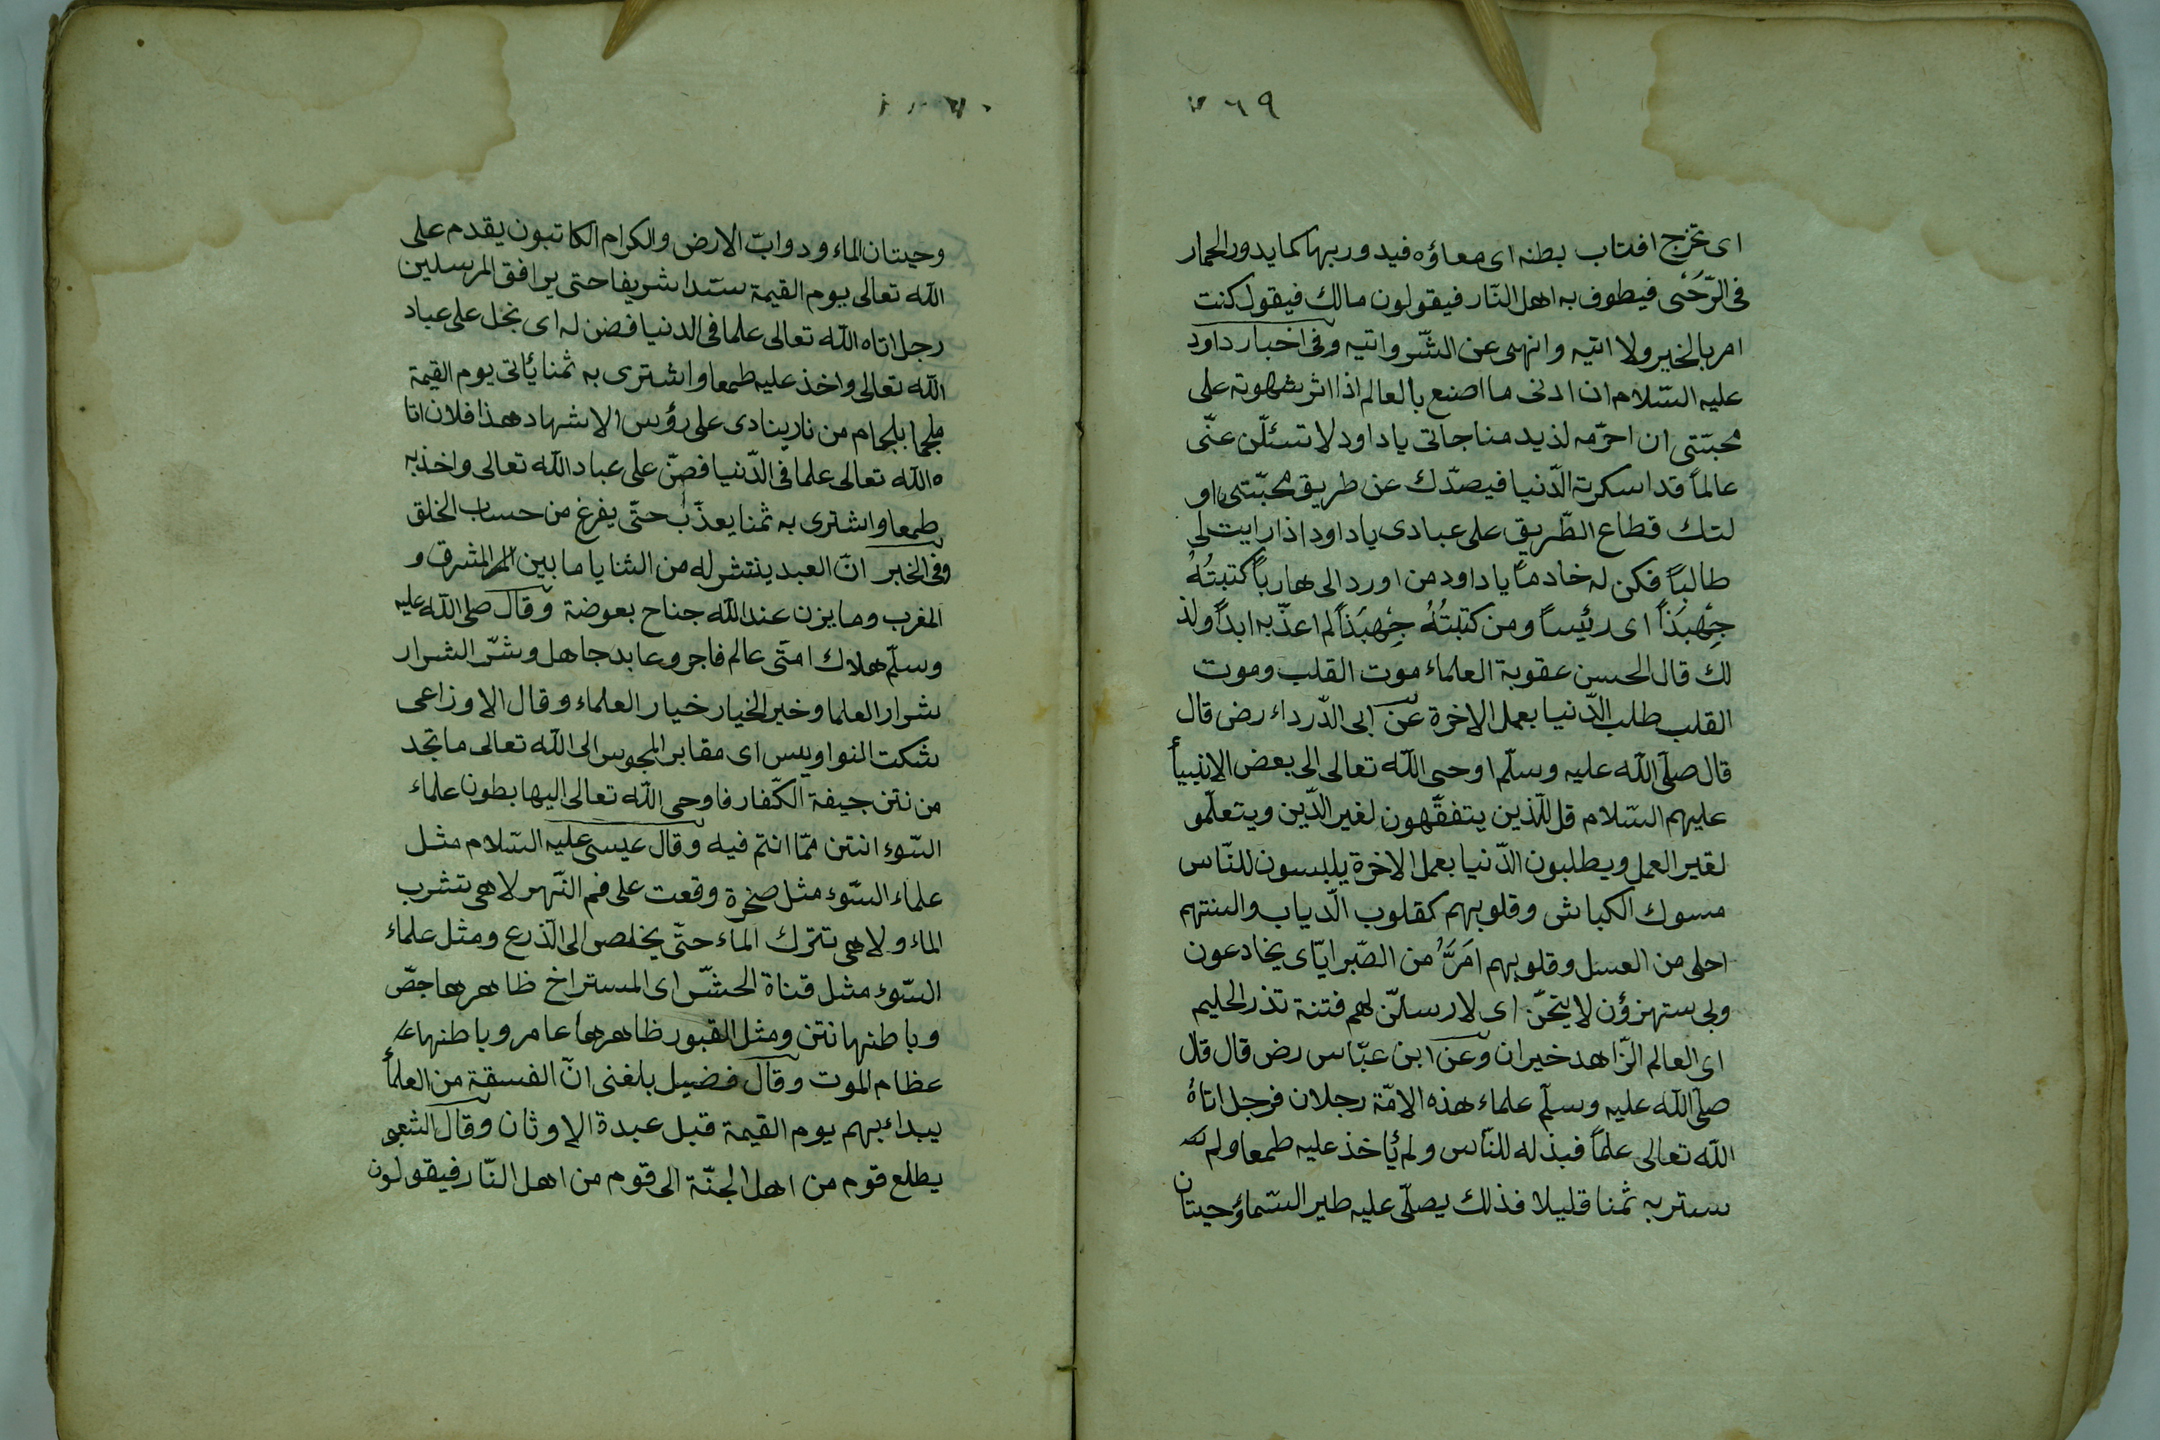 ٦٩
ای تخرج افتاب بطنه ای معاؤه فيدور بها كما يدور الحمار
فی الرّحٰی فيطوف به اهل النّار فيقولون مالك فيقول كنت
امر بالخير ولا اتيه وانهی عن الشّر واتيه وفی اخبار داود
عليه السّلام ان ادنی ما اصنع بالعالم اذا اثر شهوته علی
محبّتی ان احرّمه لذيذ مناجاتی ياداود لا تسئلّن عنّی
عالماً قد اسكرته الدّنيا فيصدّك عن طريق محبّتی او
لئك قطاع الطّريق علی عبادی ياداود اذا رايت لی
طالباً فكن له خادماً ياداود من اورد الی هارباً كتبتُهُ
جِهْبَذاً ای رئيساً ومن كتبتُهُ جِهْبَذاً لم اعذّبه ابداً ولذ
لك قال الحسن عقوبة العلماء موت القلب وموت
القلب طلب الدّنيا بعمل الاخرة عن ابی الدّرداء رض قال
قال صلّی اللّه عليه وسلّم اوحی اللّه تعالی الی بعض الانبيأ
عليهم السّلام قل للّذين يتفقّهون لغير الدّين ويتعلّمو
لغير العمل ويطلبون الدّنيا بعمل الاخرة يلبسون للنّاس
مسوك الكباش وقلوبهم كمقلوب الّدياب والسنتهم
احلی من العسل وقلوبهم امَرَّ من الصّبر ايّای يخادعون
وبی ستهزؤن لايتحنّ ای لارسلنّ لهم فتنة تذر الحليم
ای العالم الزّاهد خيران وعن ابن عبّاس رض قال قال
صلّی اللّه عليه وسلّم علماء هذه الامّة رجلان فرجل اتاهُ
اللّه تعالی علماً فبذله للنّاس ولم يأخذ عليه طمعا ولم
ستر به ثمنا قليلا فذلك يصلّی عليه طير السّماؤ حيتان
وحيتان الماء ودوابّ الارض والكرام الكاتبون يقدم علی
اللّه تعالی يوم القيمة ستدا شريفا حتی يرافق المرسلين
رجل اتاه اللّه تعالی علما فی الدنيا فضن له ای بخل علی عباد
اللّه تعالی واخذ عليه طمعا واشتری به ثمنا يأتی يوم القيمة
ملجما بلجام من نار ينادی علی رؤس الاشهاد هذا فلان اتا
ه اللّه تعالی علما فی الدّنيا فضنّ علی عباد اللّه تعالی واخذ به
طمعا واشتری به ثمنا يعذّب حتّی يفرغ من حساب الخلق
وفی الخبر انّ العبد ينتشر له من الثنايا ما بين المشرق و
المغرب وما يزن عند اللّه جناح بعوضة وقال صلی اللّه عليه
وسلّم هلاك امتی عالم فاجر وعابد جاهل وشرّ الشرار
شرار العلما وخير الخيار خيار العلماء وقال الاوزاعی
شكت النواويس ای مقابر المجوس الی اللّه تعالی ما تجد
من نتن جيفة الكّفار فاوحی اللّه تعالی اليها بطون علماء
السّوء انتن ممّا انتم فيه وقال عيسی عليه السّلام مثل
علماء السّوء مثل صخرة وقعت علی فم النّهر لا هی تشرب
الماء ولا هی تترك الماء حتّی يخلص الی الذرع ومثل علماء
السّوء مثل قناة الحشّ ای المستراخ ظاهرها جصّ
وباطنها نتن ومثل القبور ظاهرها عامر وباطنها
عظام الموت وقال فضيل بلغنی انّ الفسقة من العلمأ
يبداء بهم يوم القيمة قبل عبدة الاوثان وقال الشعبی
يطلع قوم من اهل الجنّة الی قوم من اهل النّار فيقولون